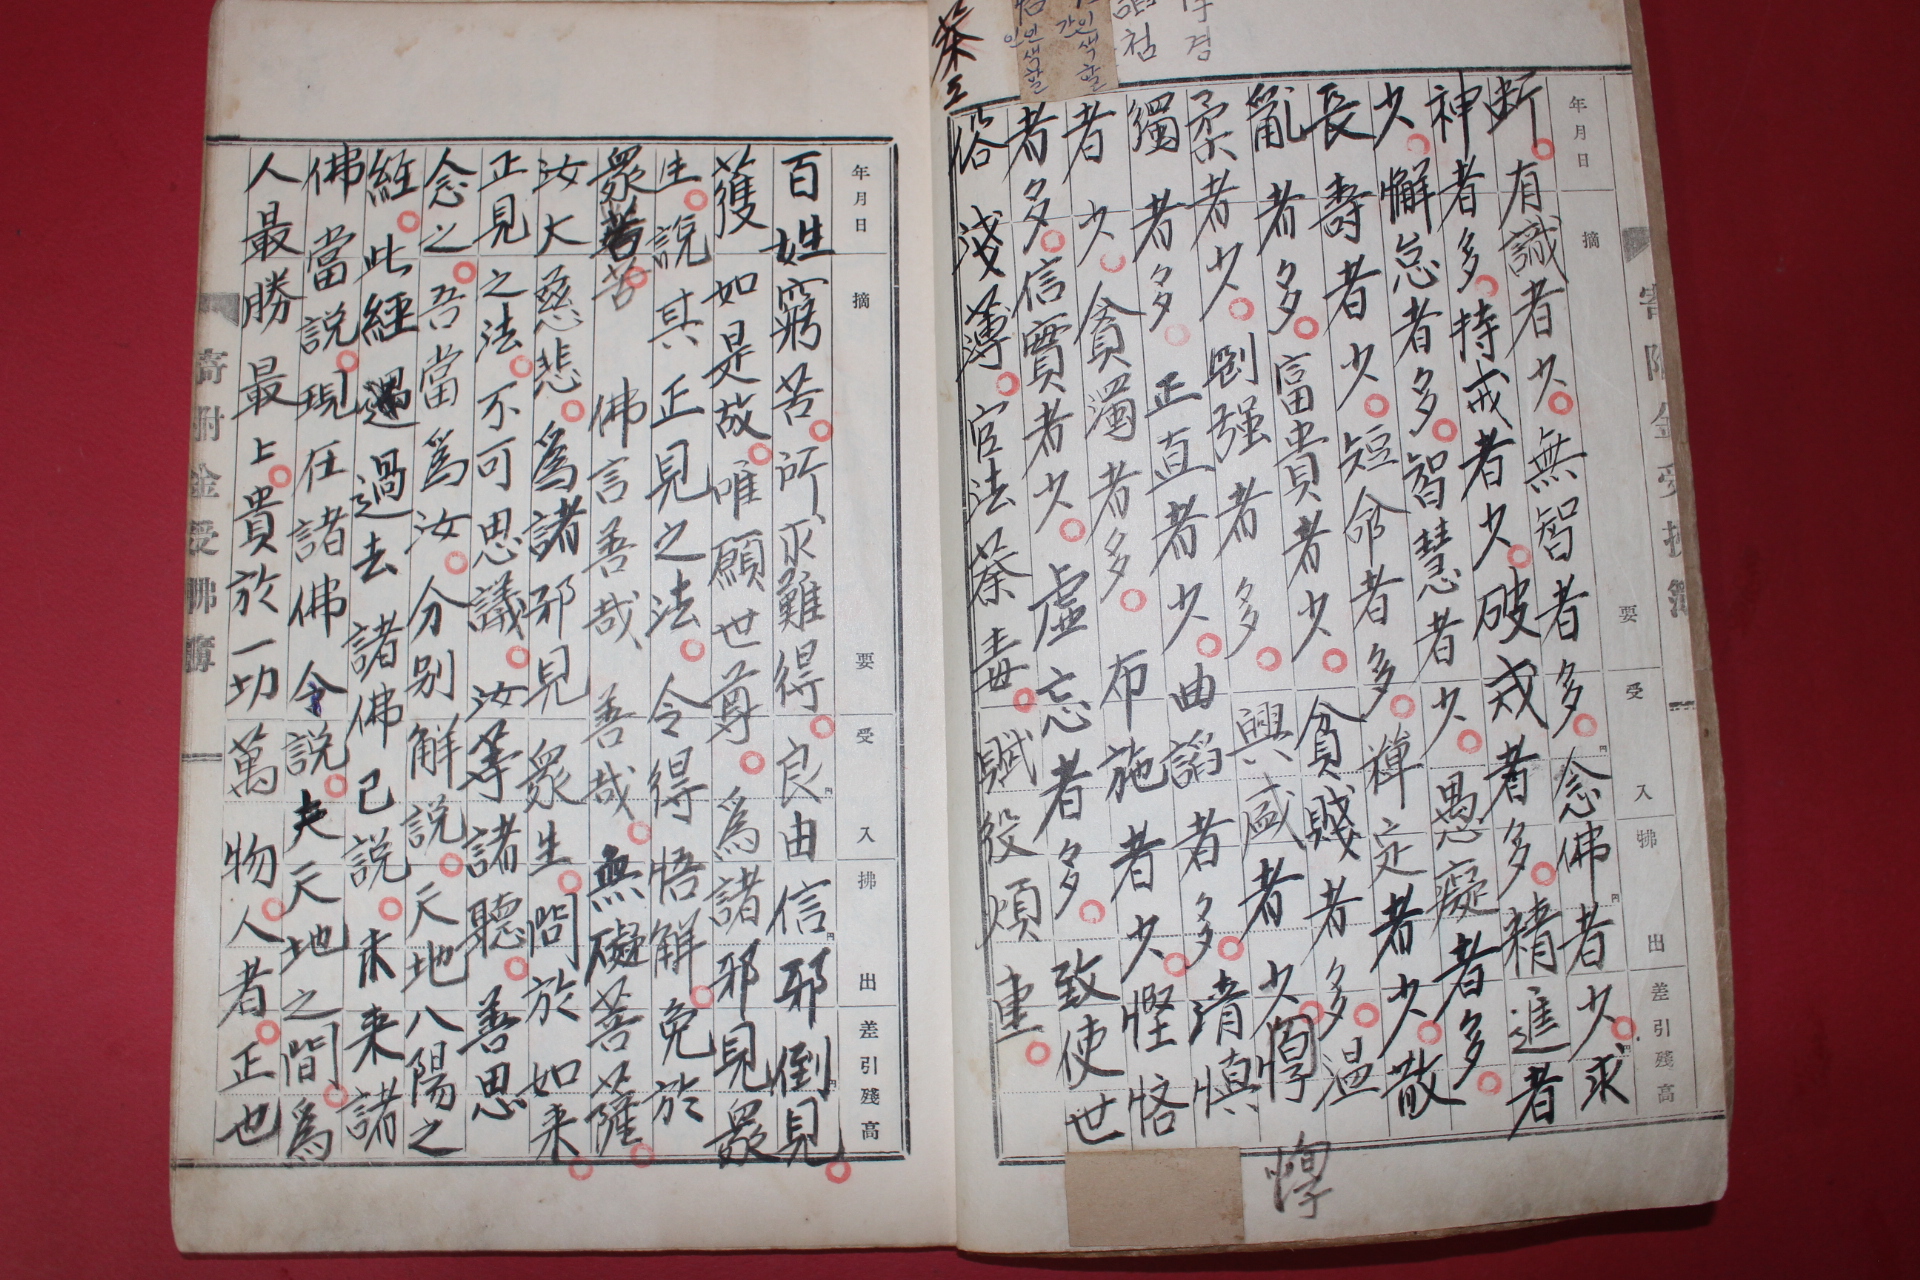 断有識者少無智者多念佛者少求
神者多持戒者少破戒者多精進者
少懈怠者多智慧者少愚癡者多
長壽者少短命者多禪定者少散
亂者多富貴者少貧賤者多溫
柔者少剛强者多興盛者少惸
獨者多正直者少曲謟者多清慎
者少貪濁者多布施者少慳悋
者多信實者少虛忘者多致使世
俗淺薄官法荼毒賦役煩重
年月日
摘
要
受
入
拂
出
差引殘高
惸
百姓窮苦所求難得良由信邪倒見
獲如是故唯願世尊為諸邪見衆
生說其正見之法令得悟解免於
衆苦佛言善哉善哉無礙菩薩
汝大慈悲為諸邪見衆生問於如来
正見之法不可思議汝等諸聽善思
念之吾當爲汝分别解說天地八陽之
經此經過去諸佛已說未来諸
佛當說現在諸佛今說夫天地之間爲
人最勝最上貴於一切萬物人者正也
年月日
摘
要
受
入
拂
出
差引殘高
寄附金受拂簿